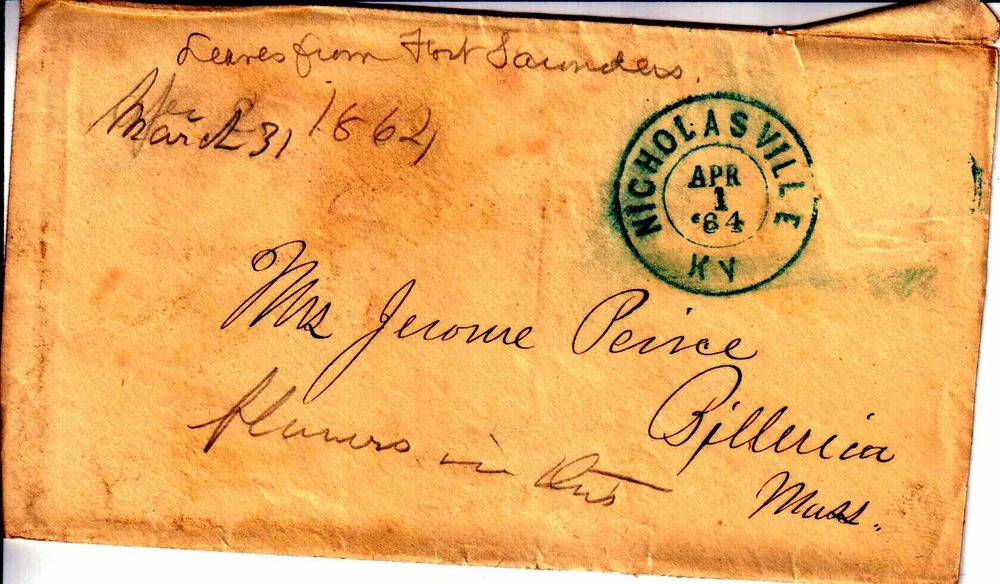 Leaves from Fort Saunders.
March 31 1864
NICHOLASVILLE
APR
1
'64
KY
Mrs Jerome Peirce
flowers in this
Billerica
Mass.